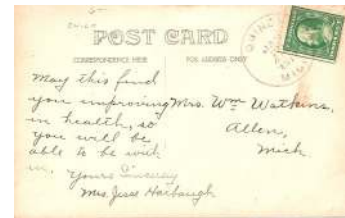 POST CARD
CORRESPONDENCE HERE
FOR ADDRESS ONLY
QUINCY
MICH
May this find
you improving
in health, so
you will be
able to be with
us. Yours Sincerely
Mrs. Jesse Harbaugh
Mrs. Wm Watkins,
Allen,
Mich.